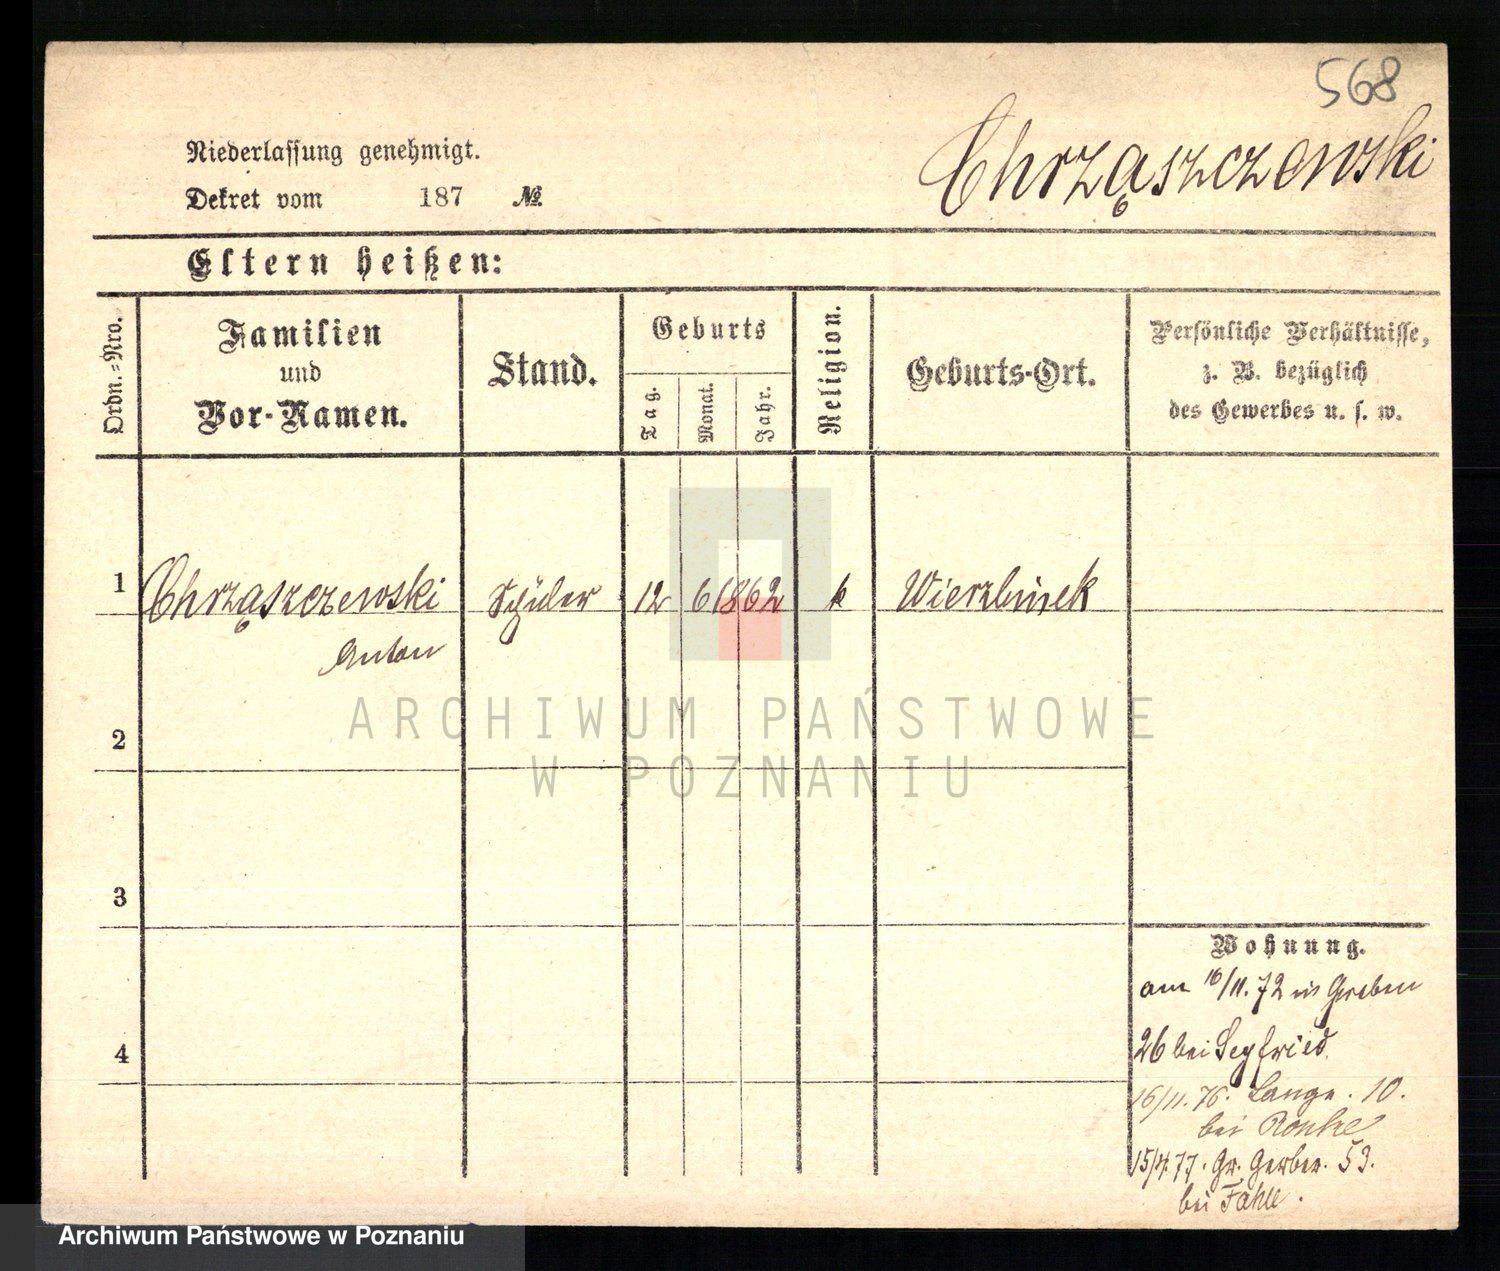 568
Niederlassung genehmigt.
Chrząszczewski
Dekret vom 187 №
Eltern heißen:
Ordn.=Nro.
Familien
und
Vor-Namen.
Stand.
Geburts
Tag.
Monat.
Jahr.
Religion.
Geburts-Ort.
Persönliche Verhältnisse,
z. B. bezüglich
des Gewerbes u. s. w.
1 Chrząszczewski Schüler 12 6 1862 k Wierzbinek
Anton
2
3
4
Wohnung.
am 16/11. 72 in Graben
26 bei Segfried.
16/11. 76. Lange. 10.
bei Ronke
15/4 77. Gr. Gerber. 53.
bei Fahle.
ARCHIWUM PAŃSTWOWE
W POZNANIU
Archiwum Państwowe w Poznaniu